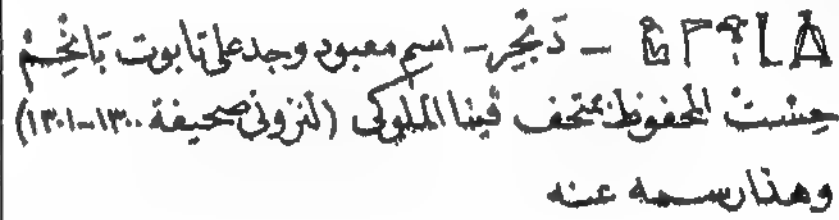 – دَنْجِر – اسم معبود وجد على تابوت بَانْخِمْ
حِسْتْ المحفوظ بمتحف ڤينا الملوكى (لنزونى صحيفة ١٣٠٠-١٣٠١)
وهذا رسمه عنه